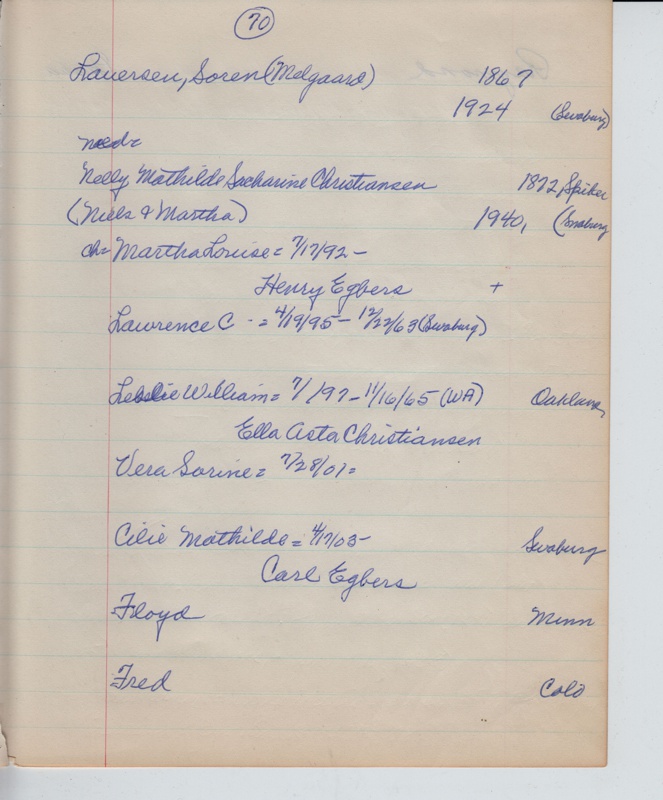 70
Lauersen, Soren (Melgaard) 1867
1924 (Swaburg)
med=
Nelly Mathilde Sacharine Christiansen 1872, Spiker
(Niels & Martha) 1940, (Swaburg
ch= Martha Louise = 7/17/92 -
Henry Egbers +
Lawrence C - = 4/19/95 - 12/22/63 (Swaburg)
Leslie William = 7/ /97 - 11/16/65 (WA) Oakland,
Ella Asta Christiansen
Vera Sorine = 7/28/01 =
Cilie Mathilde = 4/17/03 - Swaburg
Carl Egbers
Floyd Minn
Fred Colo